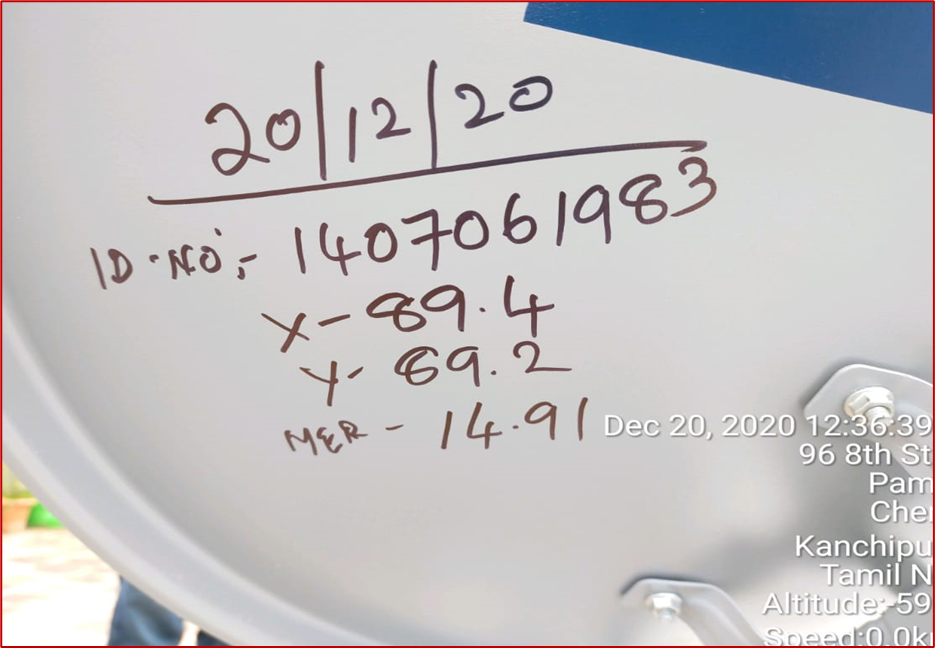 20/12/20
ID.NO:- 1407061983
X-89.4
Y-89.2
MER - 14.91
Dec 20, 2020 12:36:39
96 8th St
Pam
Che
Kanchipu
Tamil N
Altitude:-59
Speed:0.0k